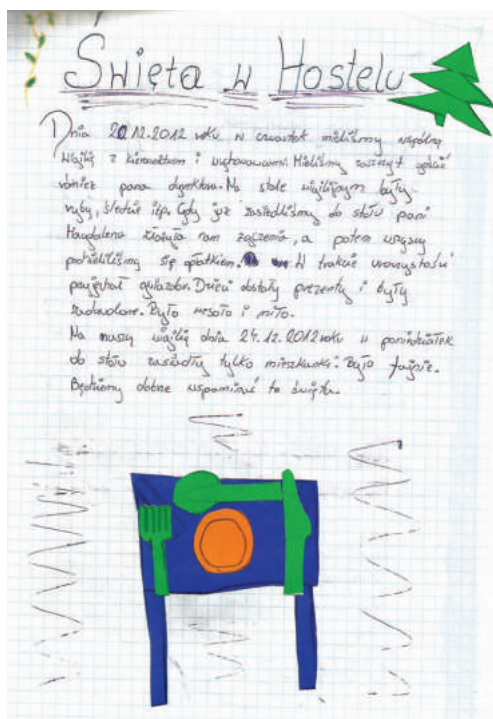 Święta w Hostelu
Dnia 20.12.2012 roku w czwartek mieliśmy wspólną
Wigilię z kierownictwem i wychowawcami. Mieliśmy zaszczyt gościć
również pana dyrektora. Na stole wigilijnym były
ryby, śledzie itp. Gdy już zasiedliśmy do stołu pani
Magdalena złożyła nam życzenia, a potem wszyscy
podzieliliśmy się opłatkiem. W trakcie uroczystości
przyjechał gwiazdor. Dzieci dostały prezenty i były
zadowolone. Było wesoło i miło.
Na naszą wigilię dnia 24.12.2012 roku w poniedziałek
do stołu zasiadły tylko mieszkanki. Było fajnie.
Będziemy dobrze wspominać te święta.